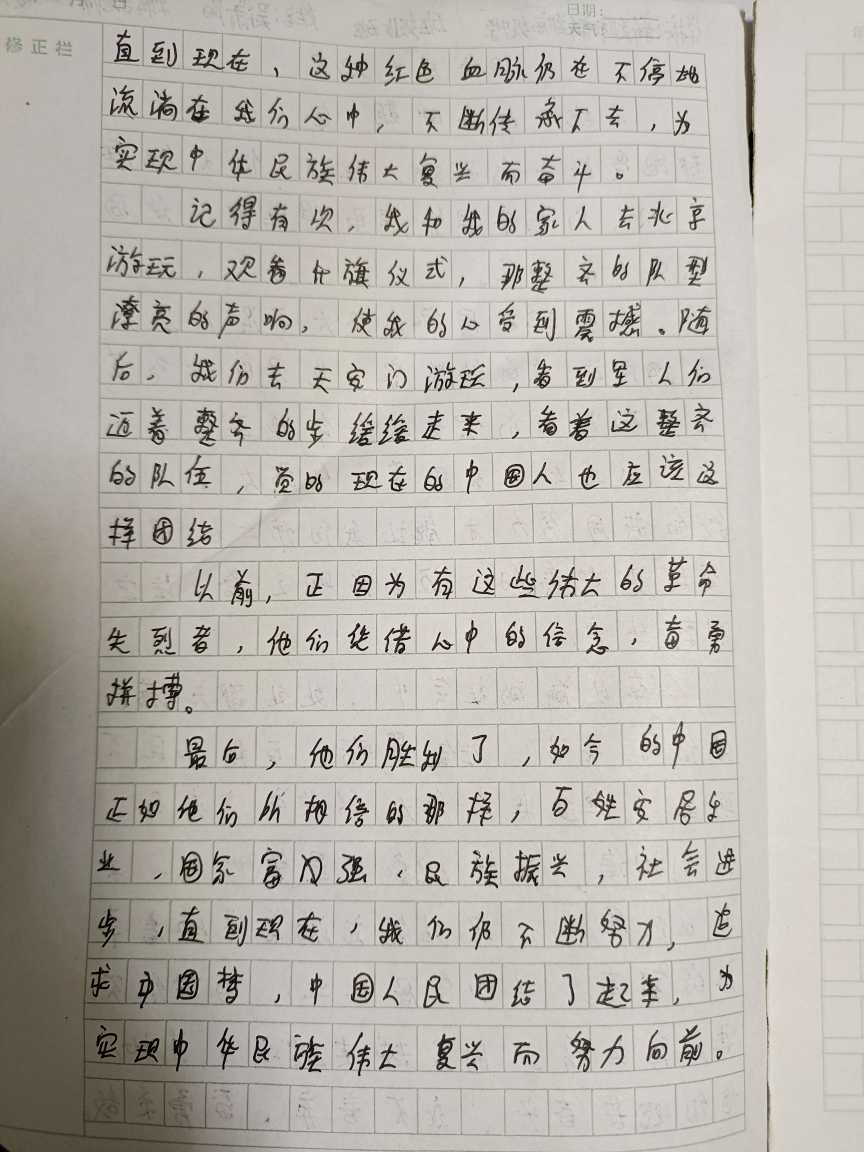 日期:
修正栏
直到现在，这种红色血脉仍在不停地
流淌在我们心中，不断传承下去，为
实现中华民族伟大复兴而奋斗。
记得有次，我和我的家人去北京
游玩，观看升旗仪式，那整齐的队型
潦亮的声响，使我的心受到震撼。随
后，我们去天安门游玩，看到军人们
迈着整齐的步缓缓走来，看着这整齐
的队伍，觉的现在的中国人也应该这
样团结
以前，正因为有这些伟大的革命
先烈者，他们凭借心中的信念，奋勇
拼搏。
最后，他们胜利了，如今的中国
正如他们所相信的那样，百姓安居乐
业，国家富强、民族振兴，社会进
步，直到现在，我们仍不断努力，追
求中国梦，中国人民团结了起来，为
实现中华民族伟大复兴而努力向前。